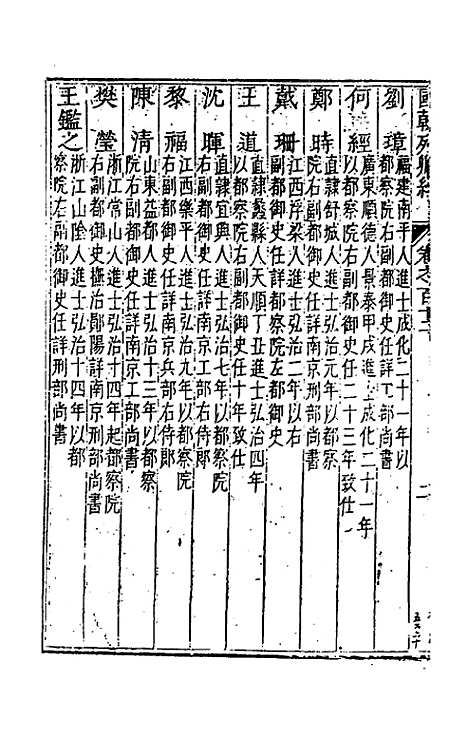 國朝列卿紀 卷之一百十
二
劉璋 福建南平人進士成化二十一年以
都察院右副都御史任詳工部尚書
何經 廣東順德人景泰甲戌進士成化二十一年
以都察院右副都御史任二十三年致仕
鄭時 直隸舒城人進士弘治元年以都察
院右副都御史任詳南京刑部尚書
戴珊 江西浮梁人進士弘治二年以右
副都御史任詳都察院左都御史
王道 直隸蠡縣人天順丁丑進士弘治四年
以都察院右副都御史任十年致仕
沈暉 直隸宜興人進士弘治七年以都察院
右副都御史任詳南京工部右侍郎
黎福 江西樂平人進士弘治九年以都察院
右副都御史任詳南京兵部右侍郎
陳清 山東益都人進士弘治十三年以都察
院右副都御史任詳南京工部尚書
樊瑩 浙江常山人進士弘治十四年起都察院
右副都御史撫治鄖陽詳南京刑部尚書
王鑑之 浙江山陰人進士弘治十四年以都
察院左副都御史任詳刑部尚書